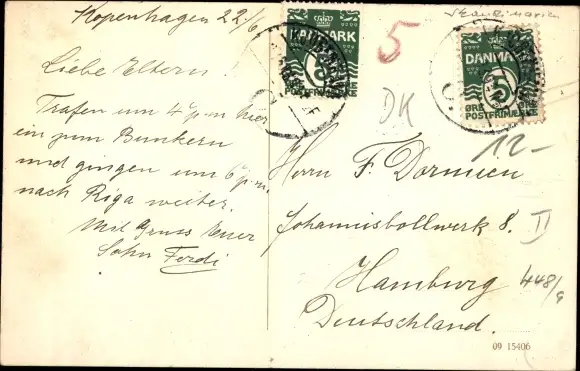 Kopenhagen 22/6
Liebe Eltern.
Trafen um 4 p.m hier
ein zum Bunkern
und gingen um 6 p.m.
nach Riga weiter.
Mit Gruss Euer
Sohn Ferdi
DANMARK
5
POSTFRIM
5
DK
DANMARK
5
ØRE
POSTFRIMÆRKE
12-
Herrn F. Dormien
Johannisbollwerk 8. II
Hamburg
448/9
Deutschland.
09 15406